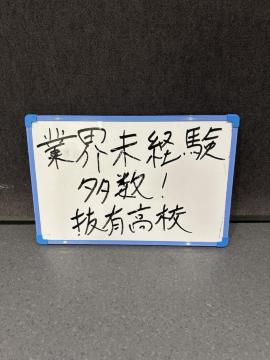 業界未経験
多数!
抜有高校